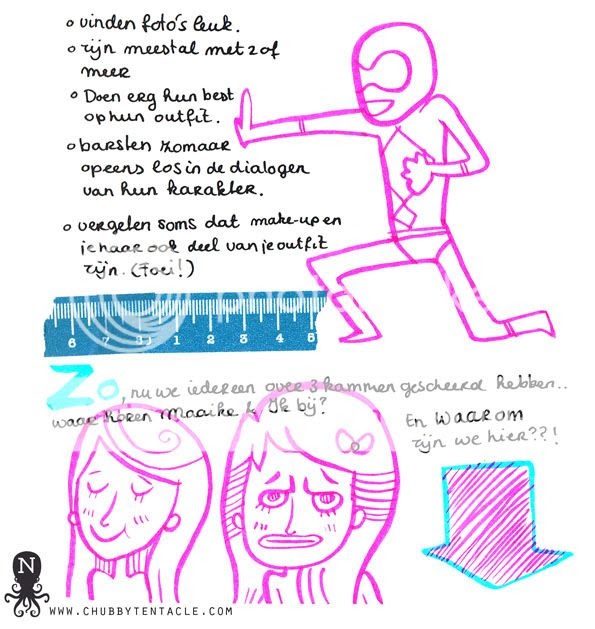 • vinden foto's leuk.
• zijn meestal met 2 of
meer
• Doen erg hun best
op hun outfit.
• barsten zomaar
opeens los in de dialogen
van hun karakter.
• vergeten soms dat make-up en
je haar ook deel van je outfit
zijn. (Foei!)
6 7 8 9 1 2 3 4 5
Zo, nu we iedereen over 3 kammen gescheerd hebben..
waar horen Maaike & Ik bij?
En waarom
zijn we hier??!
N
WWW.CHUBBYTENTACLE.COM